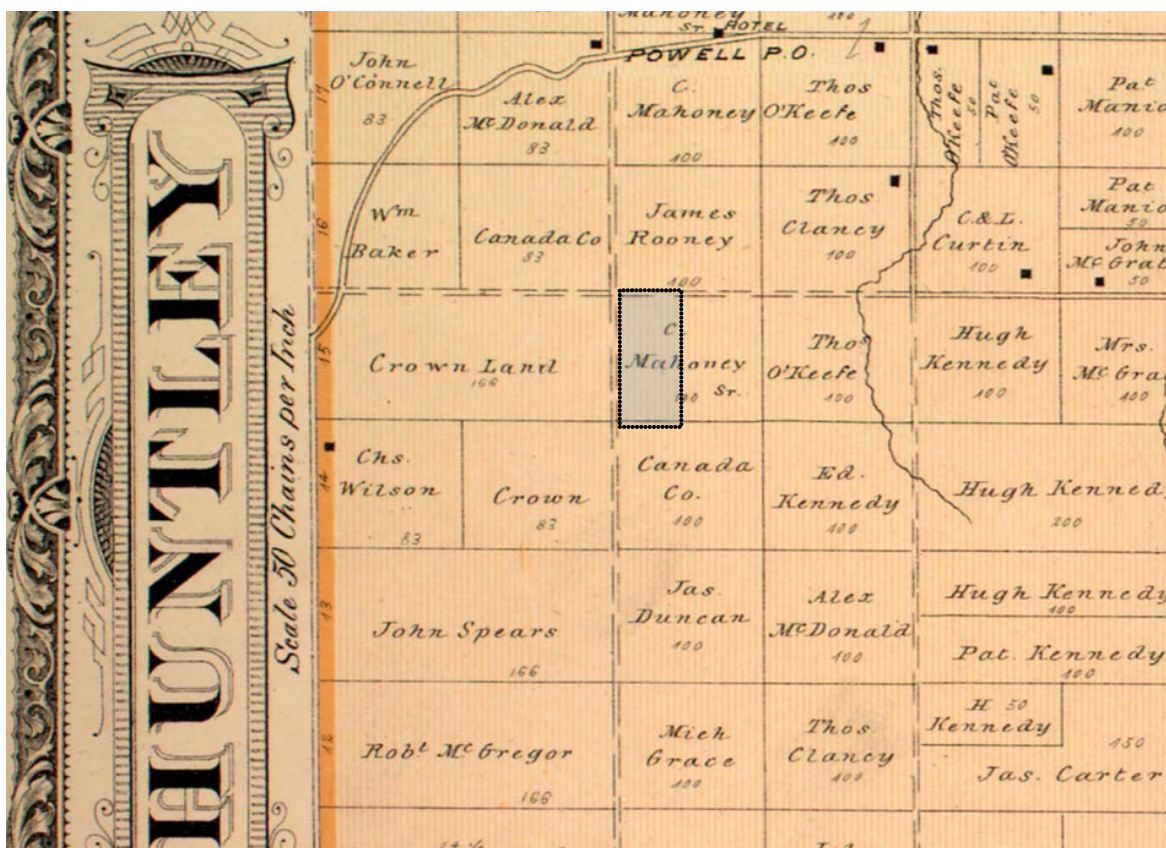 HUNTLEY
Scale 50 Chains per Inch
Mahoney
St. HOTEL
POWELL P.O.
17
John
O'Connell
83
Alex
McDonald
83
C.
Mahoney
100
Thos
O'Keefe
100
Thos.
O'Keefe
50
Pat
O'Keefe
50
Pat
100
16
Wm
Baker
Canada Co
83
James
Rooney
100
Thos
Clancy
100
C. & L.
Curtin
100
Pat
50
John
50
15
Crown Land
166
C.
Mahoney
Sr.
100
Thos
O'Keefe
100
Hugh
Kennedy
100
Mrs.
100
14
Chs.
Wilson
83
Crown
83
Canada
Co.
100
Ed.
Kennedy
100
Hugh Kenned
200
13
John Spears
166
Jas.
Duncan
100
Alex
McDonald
100
Hugh Kennedy
100
Pat. Kennedy
100
12
Robt McGregor
166
Mich
Grace
100
Thos
Clancy
100
H 50
Kennedy
150
Jas. Carter